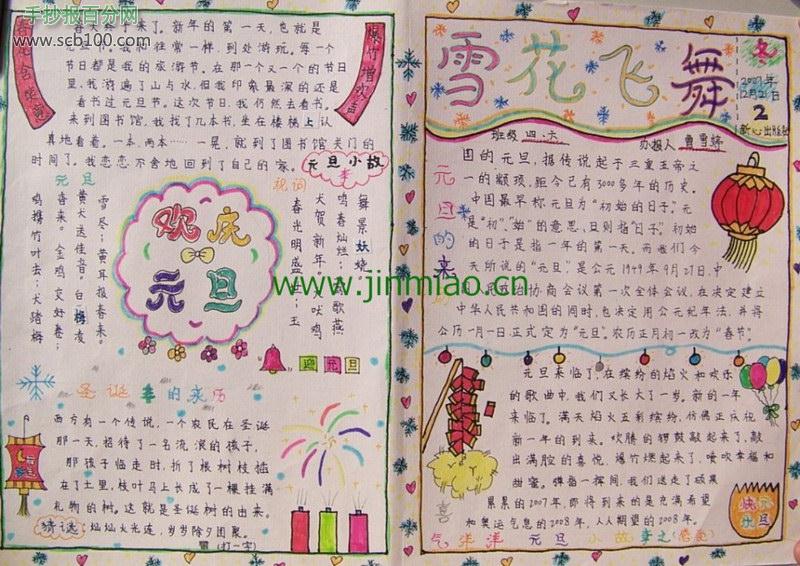 手抄报百分网
www.scb100.com
来了。新年的第一天，也就是
往常一样，到处游玩。每一个
节日都是我的旅游节。在那一个又一个的节日
里，我游遍了山与水，但我印象最深的还是
看书过元旦节。这次节日，我仍然去看书。
来到图书馆，我找了几本书，坐在楼梯上认
真地看着。一本，两本……一晃，就到了图书馆关门的
时间了。我恋恋不舍地回到了自己的家。
元旦小故
元旦
雪尽；黄耳报春来。
黄犬送佳音。白梅凌
喜来。金鸡交好卷；
鸡携竹叶去；犬踏梅
欢庆
元旦
祝词
舞景妖娆
鸣春灿烂；
犬贺新年。
春光明盛世；玉
迎元旦
圣诞
的来历
西方有一个传说，一个农民在圣诞
那一天，招待了一名流浪的孩子，
那孩子临走时，折了根树枝插
在了土里，枝叶马上长成了一棵挂满
礼物的树。这就是圣诞树的由来。
猜谜：灿灿火光连，岁岁除夕团聚。
（打一字）
雪花飞舞
冬
2007年
12月21日
2
班级 四.六
办报人 曹雪婷
元旦的来历
国的元旦，据传说起于三皇五帝之
一的颛顼，距今已有3000多年的历史。
中国最早称元旦为“初始的日子”。元
是“初”，“始”的意思，旦则指“日子”。初始
的日子是指一年的第一天。而我们今
天所说的“元旦”，是公元1949年9月27日，中
政治协商会议第一次全体会议，在决定建立
中华人民共和国的同时，也决定用公元纪年法，并将
公历1月1日正式定为“元旦”。农历正月初一改为“春节”。
元旦来临了，在缤纷的焰火和欢乐
的歌曲中，我们又长大了一岁。新的一年
来临了。满天焰火五彩缤纷，仿佛正庆祝
新一年的到来。欢腾的锣鼓敲起来了，敲
出满腔的喜悦，爆竹燃起来了，
幸福和
甜蜜。弹指一挥间，我们送走了硕果
累累的2007年，即将得到来的是充满希望
和奥运气息的2008年。人人期望的2008年。
喜
气洋洋
元旦
小故事之
快乐元旦
www.jinmiao.cn